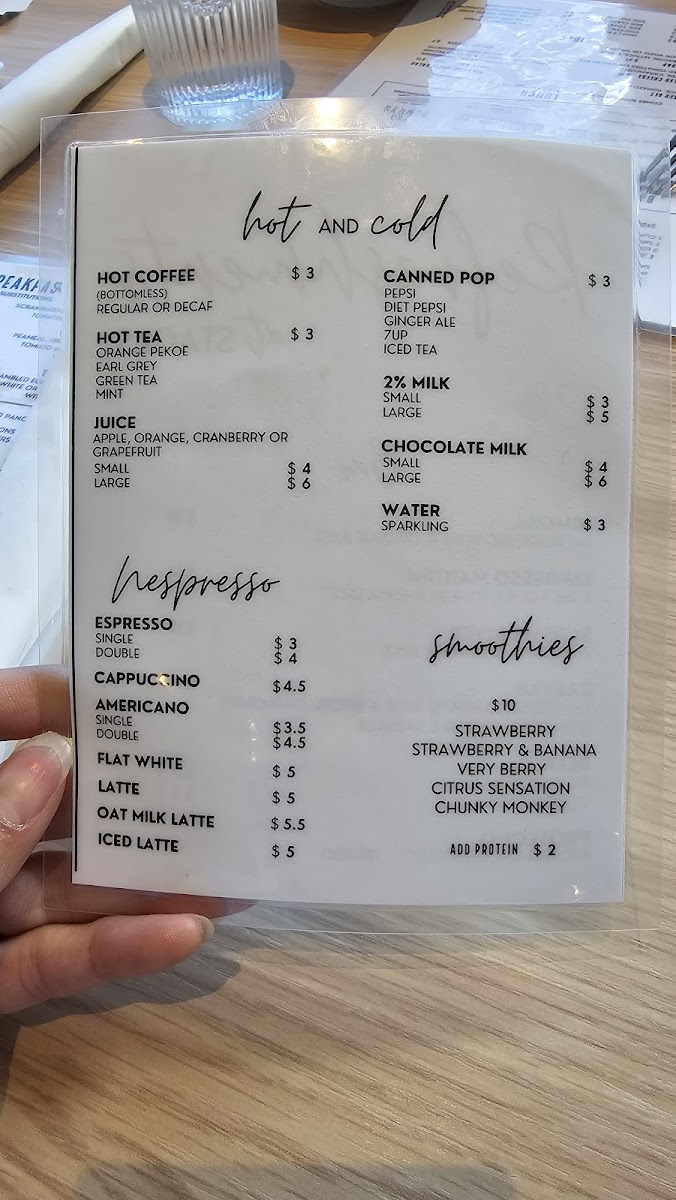 hot AND cold
HOT COFFEE $ 3
(BOTTOMLESS)
REGULAR OR DECAF
HOT TEA $ 3
ORANGE PEKOE
EARL GREY
GREEN TEA
MINT
JUICE
APPLE, ORANGE, CRANBERRY OR
GRAPEFRUIT
SMALL $ 4
LARGE $ 6
CANNED POP $ 3
PEPSI
DIET PEPSI
GINGER ALE
7UP
ICED TEA
2% MILK
SMALL $ 3
LARGE $ 5
CHOCOLATE MILK
SMALL $ 4
LARGE $ 6
WATER
SPARKLING $ 3
Nespresso
ESPRESSO
SINGLE $ 3
DOUBLE $ 4
CAPPUCCINO $4.5
AMERICANO
SINGLE $3.5
DOUBLE $4.5
FLAT WHITE $ 5
LATTE $ 5
OAT MILK LATTE $ 5.5
ICED LATTE $ 5
smoothies
$10
STRAWBERRY
STRAWBERRY & BANANA
VERY BERRY
CITRUS SENSATION
CHUNKY MONKEY
ADD PROTEIN $ 2